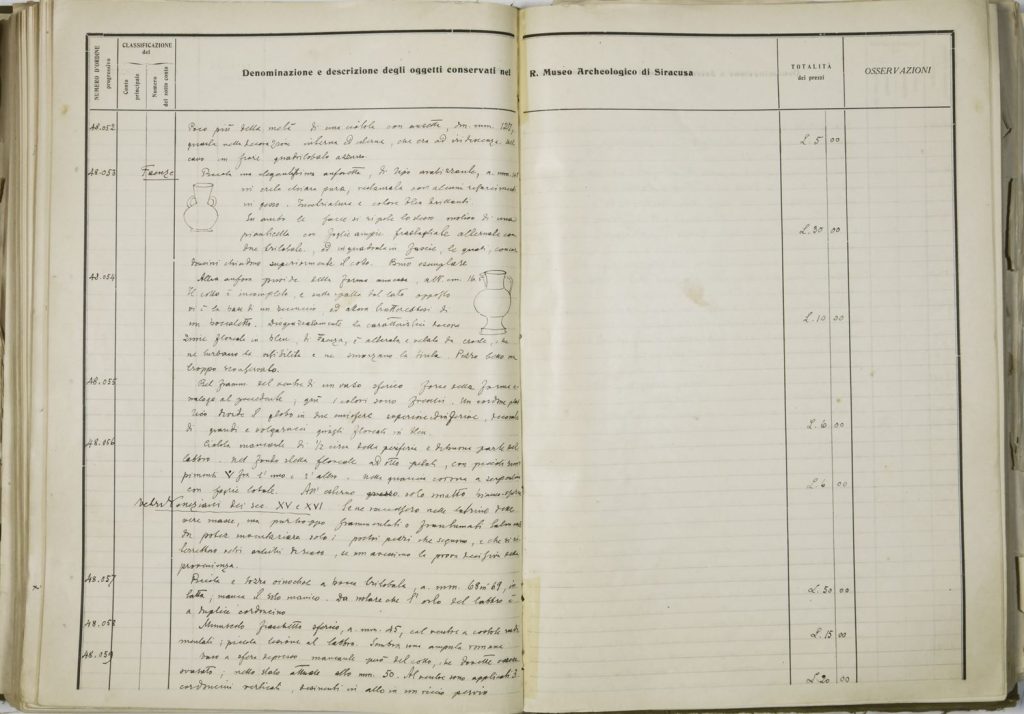 NUMERO D'ORDINE progressivo
CLASSIFICAZIONE del
Conto principale
Numero del sotto conto
Denominazione e descrizione degli oggetti conservati nel R. Museo Archeologico di Siracusa
TOTALITÀ dei prezzi
OSSERVAZIONI
48.052 Poco più della metà di una ciotola con ansette, dm. mm. 127,
interna ed esterna, che era ad iridescenza. Nel
cavo un fiore quadrilobato azzurro. L. 5 00
48.053 Faenze Piccola ma elegantissima anforetta, di tipo arabizzante, a. mm.
in creta chiara pura, restaurata con alcuni rifacimenti
in gesso. Invetriatura e colore bleu brillanti.
In ambo le facce si ripete lo stesso motivo di una
pianticella con foglie ampie frastagliate alternate con
due trilobate, ed inquadrata in fascie, le quali,
chiudono superiormente il collo. Buon esemplare L. 30 00
48.054 Altra anfora della forma annessa, alt. cm. 16.
Il collo è incompleto, e sulla spalla dal lato opposto
vi è la base di un beccuccio, ed allora tratterebbesi di
un boccaletto. Disgraziatamente la caratteristica decora
zione floreale in bleu, di Faenza, è alterata e velata da croste, che
ne turbano la visibilità e ne smorzano la tinta. Pezzo bello ma
troppo sconservato. L. 10 00
48.055 Bel framm. del ventre di un vaso sferico forse della forma a
naloga al precedente; qui i colori sono freschi. Un cordone
divide il globo in due emisfere, superiore ed inferiore, decorate
di grandi e floreali in bleu. L. 6 00
48.056 Ciotola mancante di 1/2 circa della periferia e di buona parte del
labbro. Nel fondo stella floreale ad otto petali, con piccoli riem
pimenti V fra l'uno e l'altro. Nella corona a serpentina
con foglie lobate. All'esterno solo smalto bianco L. 6 00
Vetri Veneziani dei sec. XV e XVI. Se ne raccolsero nelle latrine delle
vere masse, ma purtroppo frammentati e frantumati
da poter inventariare solo i pochi pezzi che seguono, e che si di
rebbero se non avessimo le prove decisive della
provenienza.
48.057 Piccola e tozza oinochoe a bocca trilobata, a. mm. 68 69, in
tatta; manca il solo manico. Da notare che l'orlo del labbro è
a duplice cordoncino L. 50 00
48.058 Minuscolo fiaschetto sferico, a. mm. 45, col ventre a costole rudi
mentali; piccola lesione al labbro. Sembra una ampolla romana L. 15 00
48.059 Vaso a sfera depressa mancante però del collo, che dovette essere
svasato; nello stato attuale alto mm. 50. Al ventre sono applicati 3
cordoncini verticali, desinenti in alto in un riccio pervio L. 20 00